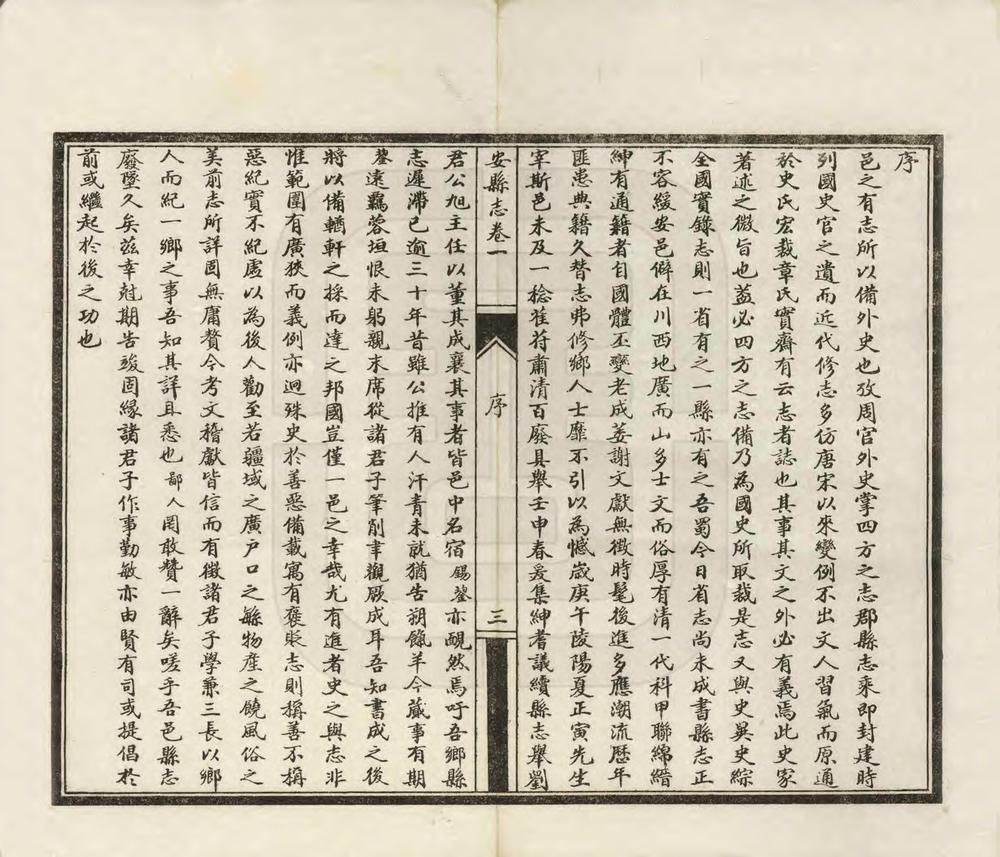 序
邑之有志所以備外史也攷周官外史掌四方之志郡縣志乘即封建時
列國史官之遺而近代修志多仿唐宋以來變例不出文人習氣而原通
於史氏宏裁章氏實齋有云志者誌也其事其文之外必有義焉此史家
著述之微旨也蓋必四方之志備乃為國史所取裁是志又與史異史綜
全國實錄志則一省有之一縣亦有之吾蜀今日省志尚未成書縣志正
不容緩安邑僻在川西地廣而山多士文而俗厚有清一代科甲聯綿縉
紳有通籍者自國體丕變老成萎謝文獻無徵時髦後進多應潮流歷年
匪患典籍久替志弗修鄉人士靡不引以為憾歲庚午陵陽夏正寅先生
宰斯邑未及一稔萑苻肅清百廢具舉壬申春爰集紳耆議續縣志舉劉
安縣志卷一
序
三
君公旭主任以董其成襄其事者皆邑中名宿錫鎣亦靦然焉吁吾鄉縣
志遲滯已逾三十年昔雖公推有人汗青未就猶告朔餼羊今蕆事有期
鎣遠羈蓉垣恨未躬親末席從諸君子筆削聿觀厥成耳吾知書成之後
將以備輶軒之採而達之邦國豈僅一邑之幸哉尤有進者史之與志非
惟範圍有廣狹而義例亦迥殊史於善惡備載寓有褒貶志則稱善不稱
惡紀實不紀虛以為後人勸至若疆域之廣户口之緐物產之饒風俗之
美前志所詳固無庸贅今考文稽獻皆信而有徵諸君子學兼三長以鄉
人而紀一鄉之事吾知其詳且悉也鄙人罔敢贊一辭矣嗟乎吾邑縣志
廢墜久矣茲幸尅期告竣固緣諸君子作事勤敏亦由賢有司或提倡於
前或繼起於後之功也